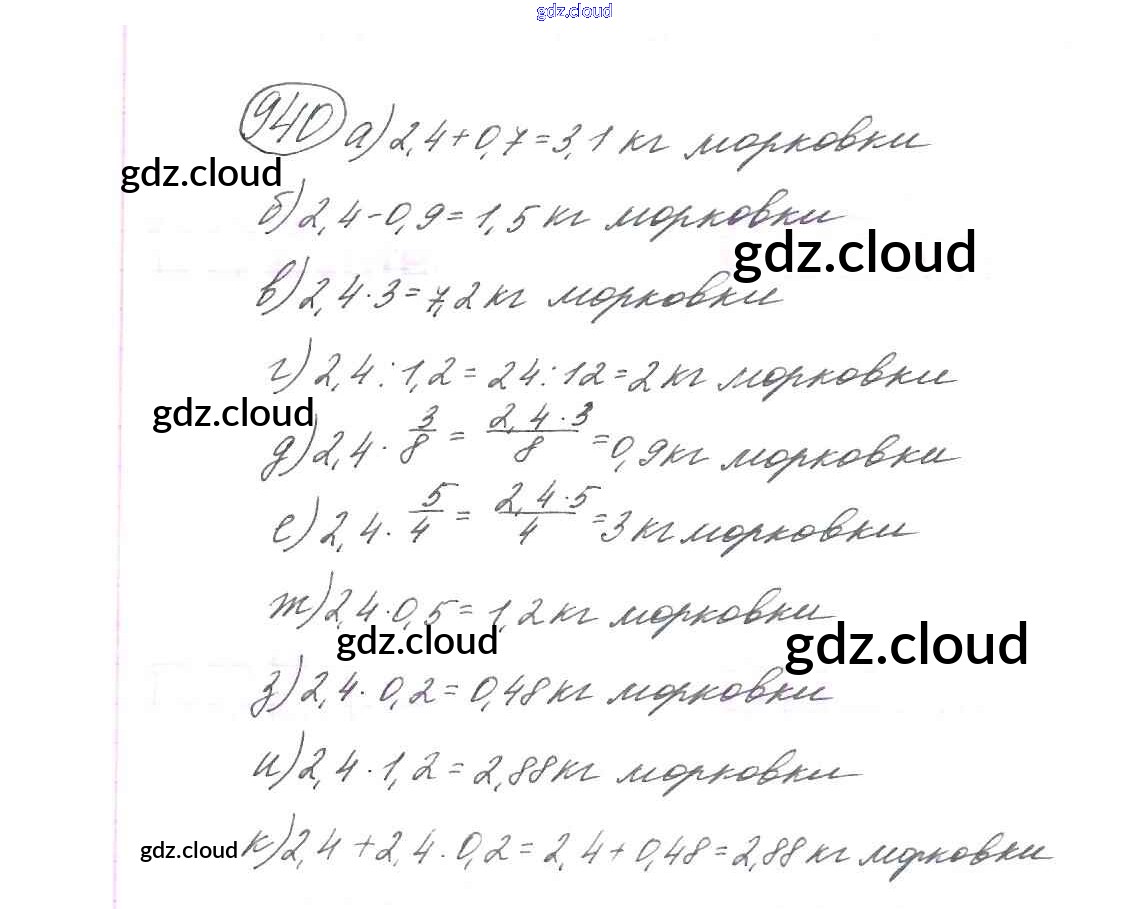 gdz.cloud
940 а) 2,4 + 0,7 = 3,1 кг морковки
gdz.cloud
б) 2,4 - 0,9 = 1,5 кг морковки
gdz.cloud
в) 2,4 · 3 = 7,2 кг морковки
г) 2,4 : 1,2 = 24 : 12 = 2 кг морковки
gdz.cloud
д) 2,4 · 3/8 = 2,4 · 3/8 = 0,9 кг морковки
е) 2,4 · 5/4 = 2,4 · 5/4 = 3 кг морковки
ж) 2,4 · 0,5 = 1,2 кг морковки
gdz.cloud
gdz.cloud
з) 2,4 · 0,2 = 0,48 кг морковки
и) 2,4 · 1,2 = 2,88 кг морковки
gdz.cloud
к) 2,4 + 2,4 · 0,2 = 2,4 + 0,48 = 2,88 кг морковки